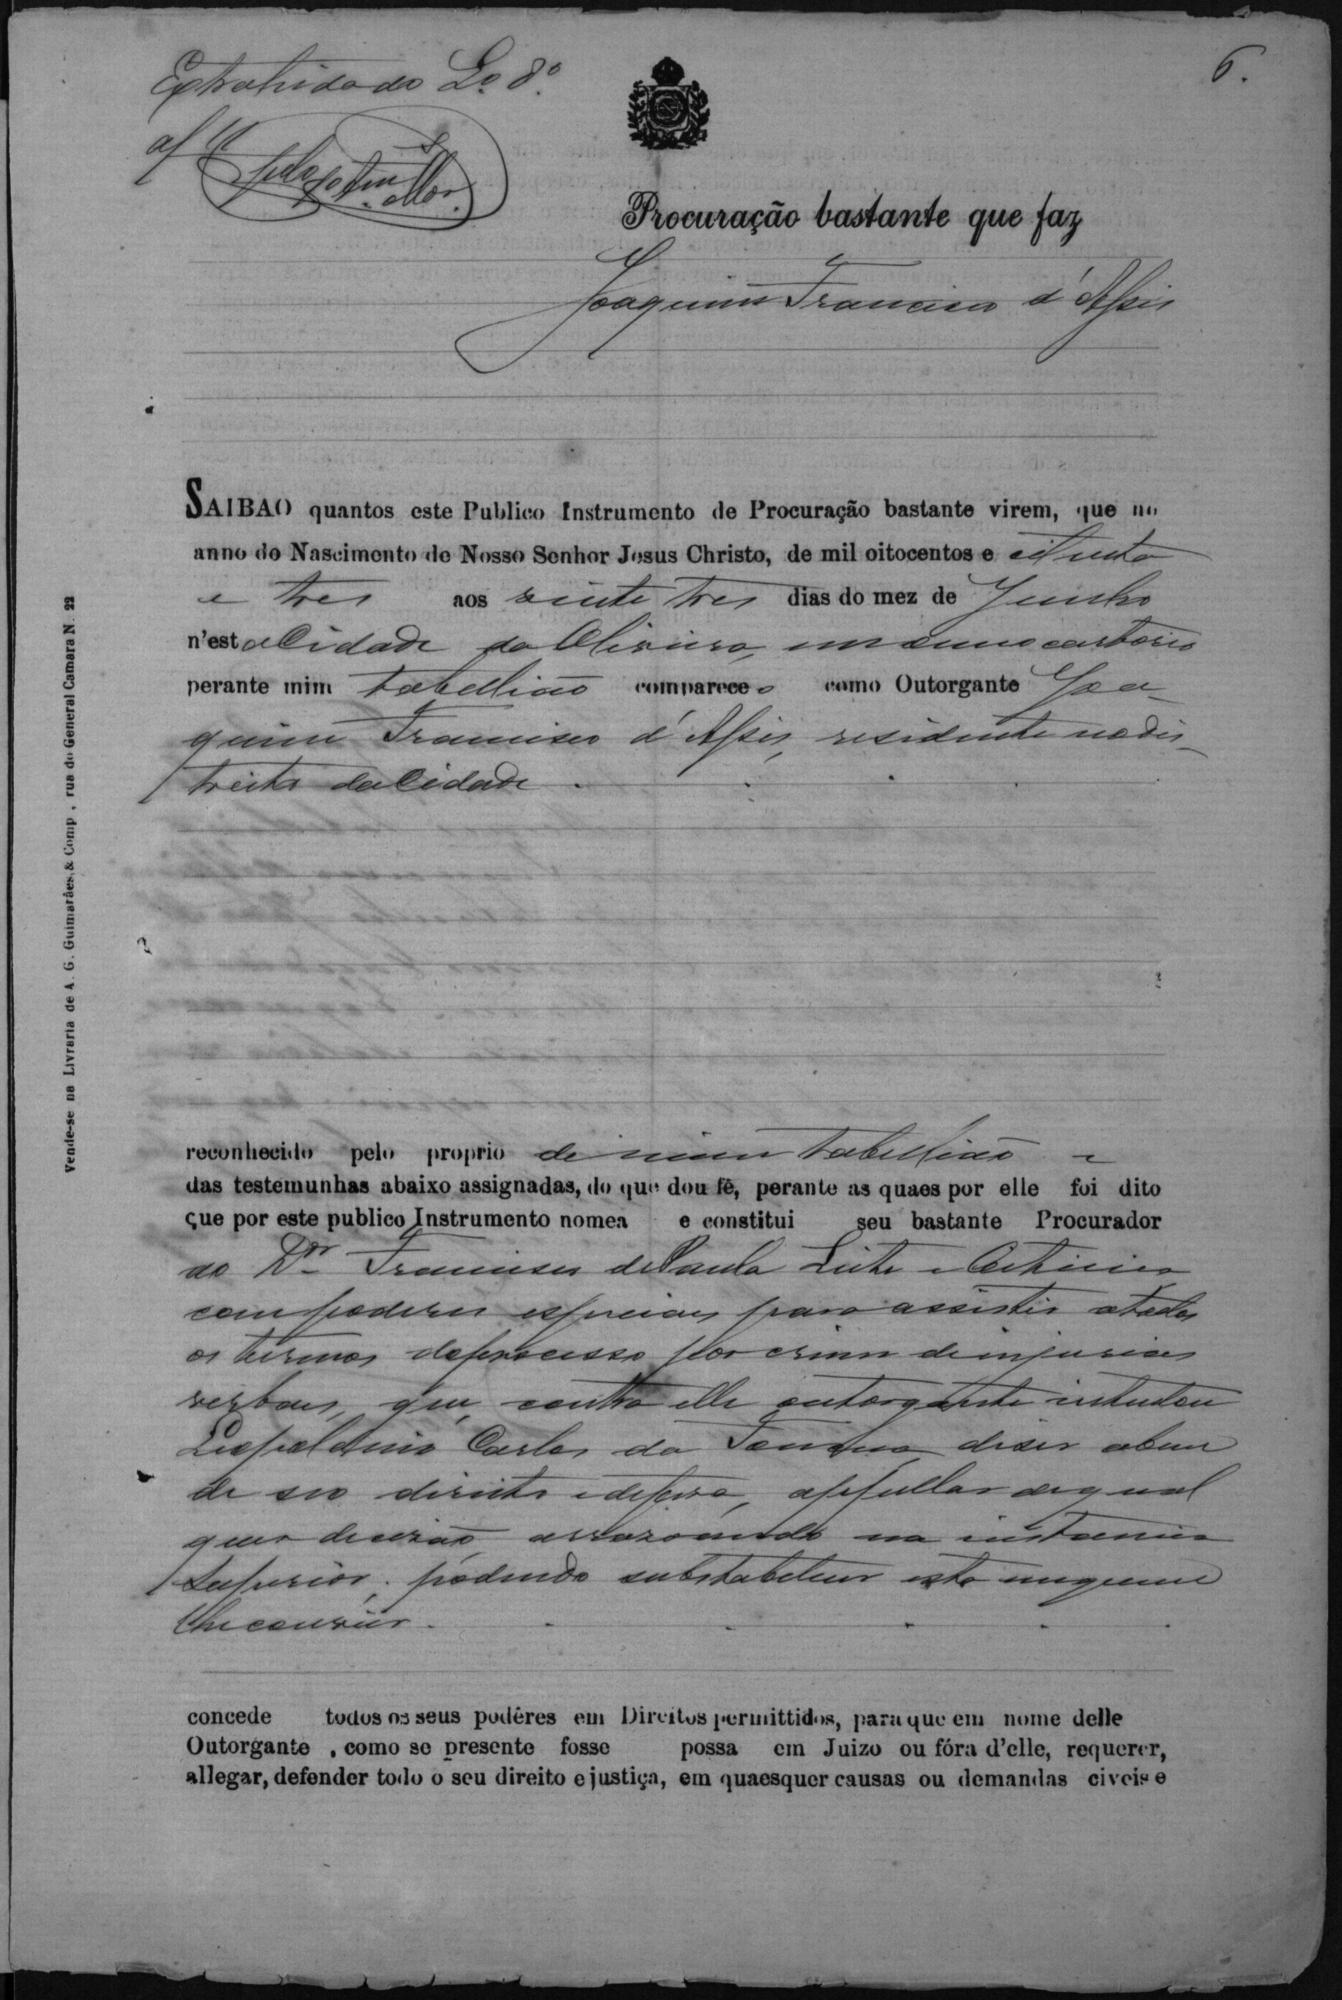 Extrahida do L.º 8.º
af
6.
Procuração bastante que faz
Joaquim Francisco d'Assis
SAIBAO quantos este Publico Instrumento de Procuração bastante virem, que no
anno do Nascimento de Nosso Senhor Jesus Christo, de mil oitocentos e oitenta
e tres aos vinte tres dias do mez de Junho
n'esta Cidade da Oliveira, em o meu cartorio
perante mim tabellião compareceo como Outorgante Joa-
quim Francisco d'Assis, residente no dis-
tricto da Cidade.
reconhecido pelo proprio de mim tabellião e
das testemunhas abaixo assignadas, do que dou fé, perante as quaes por elle foi dito
que por este publico Instrumento nomea e constitui seu bastante Procurador
ao Dr. Francisco de Paula Leite e
com poderes especiaes para assistir a todos
os termos do processo por crime de injurias
verbaes, que, contra elle outorgante intentou
Leopoldino Carlos da Fonseca, dizer a bem
de seo direito e defesa, appellar de qual
quer decizão, arrazoando na instancia
superior, podendo substabelecer esta em quem
lhe convier.
concede todos os seus podêres em Direitos permittidos, para que em nome delle
Outorgante, como se presente fosse possa em Juizo ou fóra d'elle, requerer,
allegar, defender todo o seu direito e justiça, em quaesquer causas ou demandas civeis e
Vende-se na Livraria de A. G. Guimarães & Comp, rua do General Camara N. 22